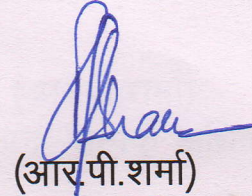 (आर.पी.शर्मा)